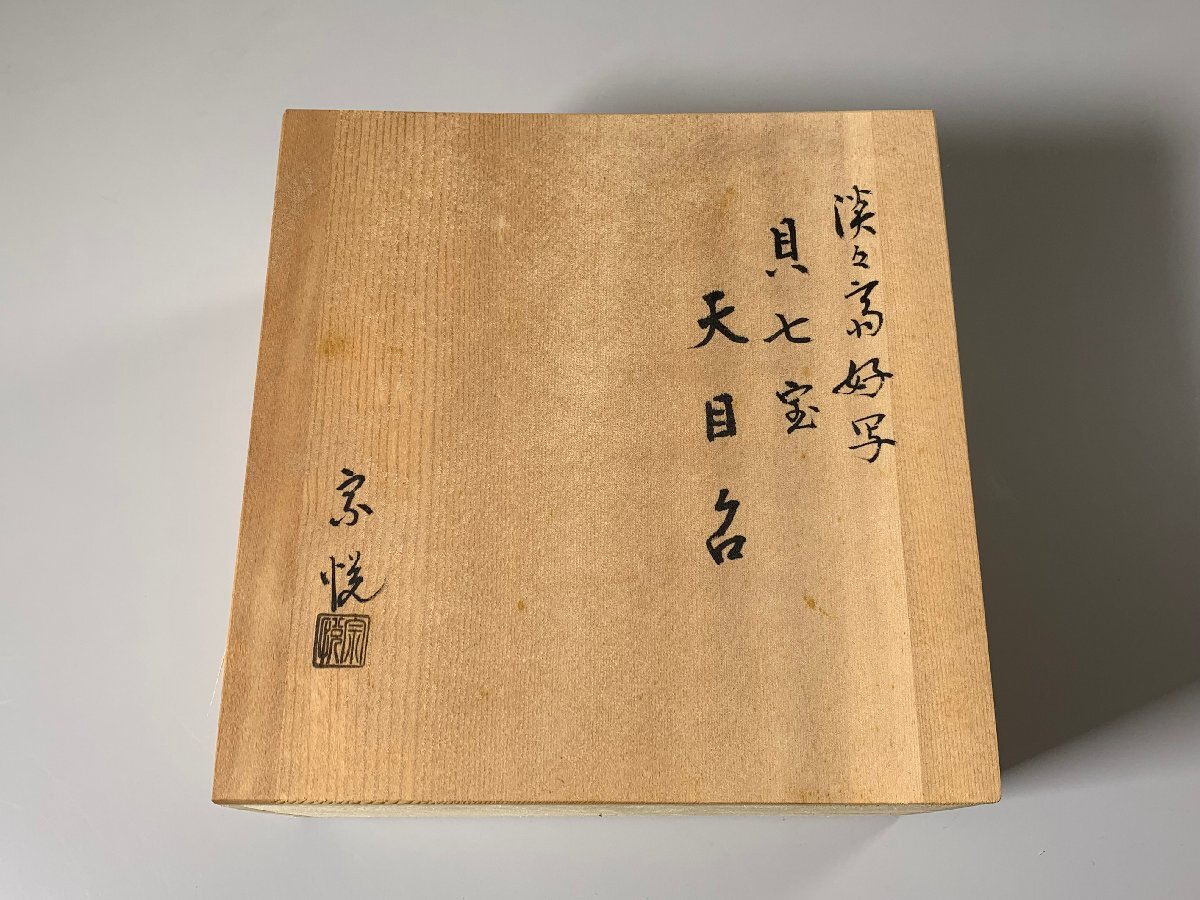 淡々斎好写
貝七宝
天目台
宗悦
宗悦